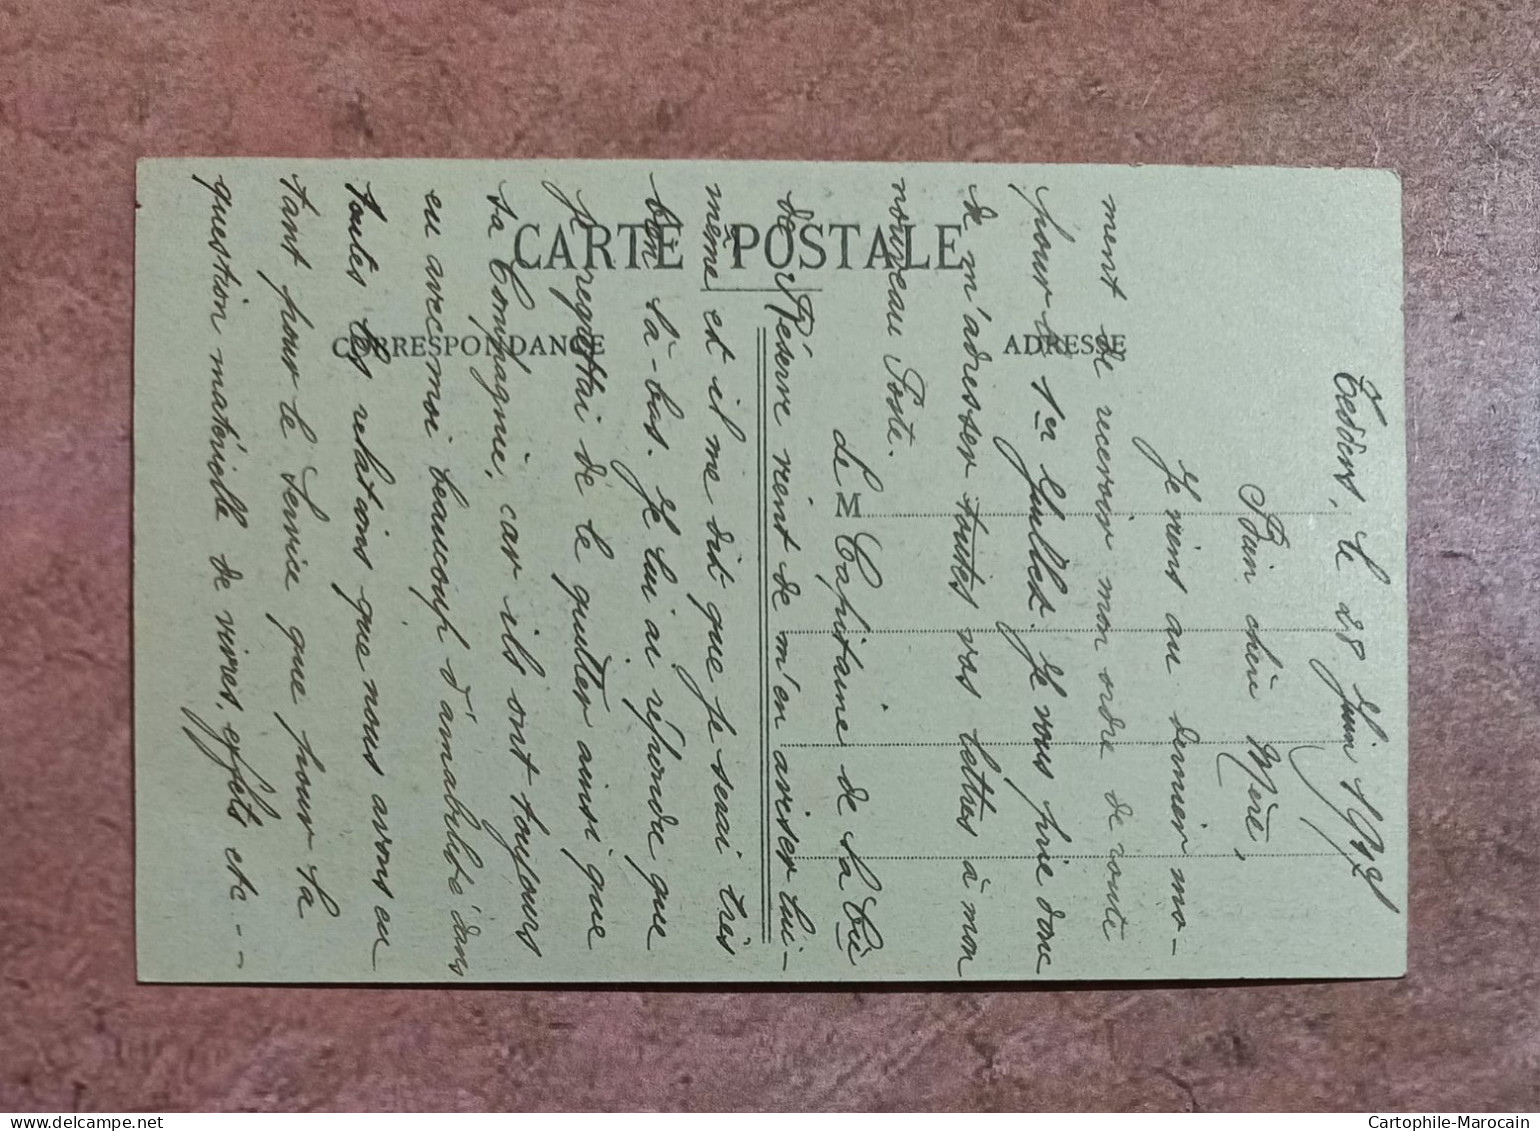 CARTE POSTALE
CORRESPONDANCE
ADRESSE
M
Teddert, le 28 Juin 1922
Bien chère Mère,
Je viens au dernier mo-
ment de recevoir mon ordre de route
pour le 1er Juillet. Je vous prie donc
de m'adresser toutes vos lettres à mon
nouveau Poste.
Le Capitaine de la Cie
de Réserve vient de m'en aviser lui-
même et il me dit que je serai très
bien là-bas. Je lui ai répondu que
je regrettai de le quitter ainsi que
sa Compagnie, car ils ont toujours
eu avec moi beaucoup d'amabilité dans
toutes les relations que nous avons eu
tant pour le Service que pour la
question matérielle de vivres, effets etc --
Cartophile-Marocain